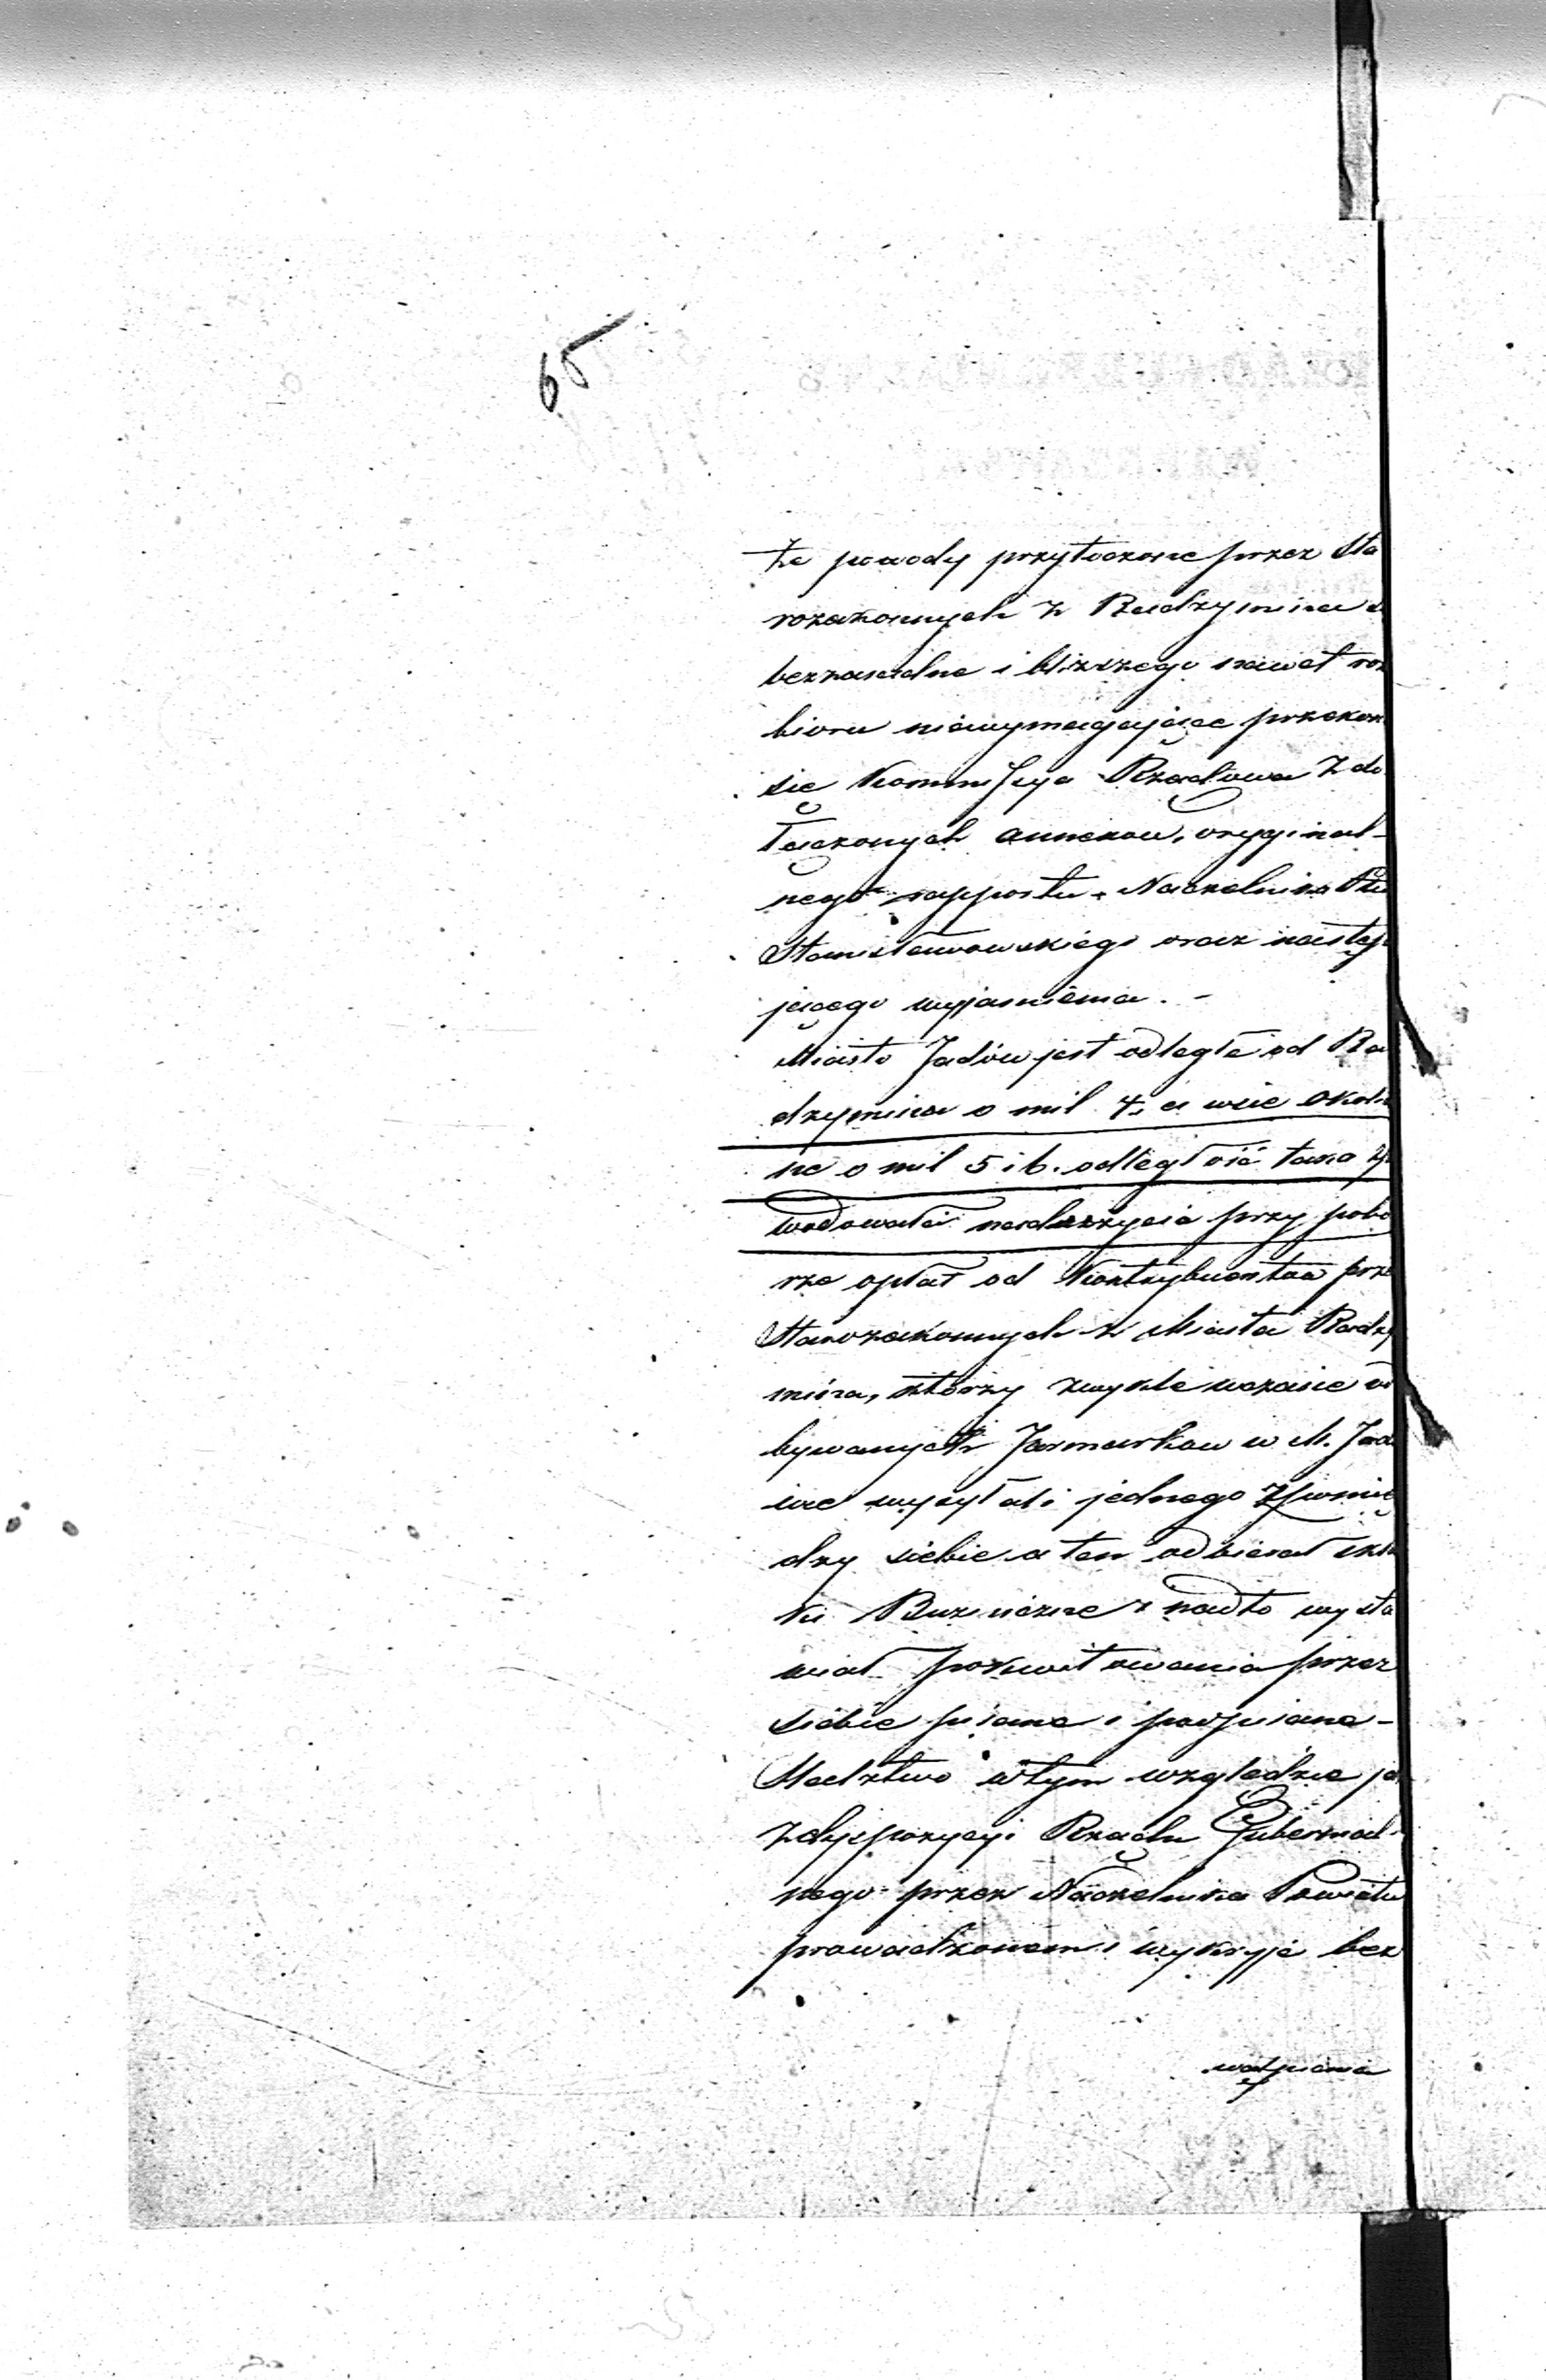 65
że powody przytoczone przez Sta
rozakonnych z Radzymina s
bezzasadne i bliższego nawet roz
bioru niewymagające przekon
się Kommissya Rządowa z do
łączonych annexow, oryginal-
nego rapportu Naczelnika Ptu
Stanisławowskiego oraz następ
jącego wyjaśnienia. -
Miasto Jadów jest odległe od Ra
dzymina o mil 4, a wsie okoli
ne o mil 5 i 6. odległość taka
wodowała nadużycia przy pobo
rze opłat od Kontrybuentow prze
Starozakonnych z Miasta Radzy
mina, którzy zwykle wczasie od
bywanych Jarmarkow w M. Jado
wie wysyłali jednego z pomię
dzy siebie a ten odbierał skła
ki Bużniczne i nadto wysta
wiał pokwitowania przez
siebie pisane i podpisane -
Sledztwo wtym względzie ja
z dyspozycyi Rządu Gubernial-
nego przez Naczelnika Powiatu
prowadzonem i wykryje bez
wątpienia